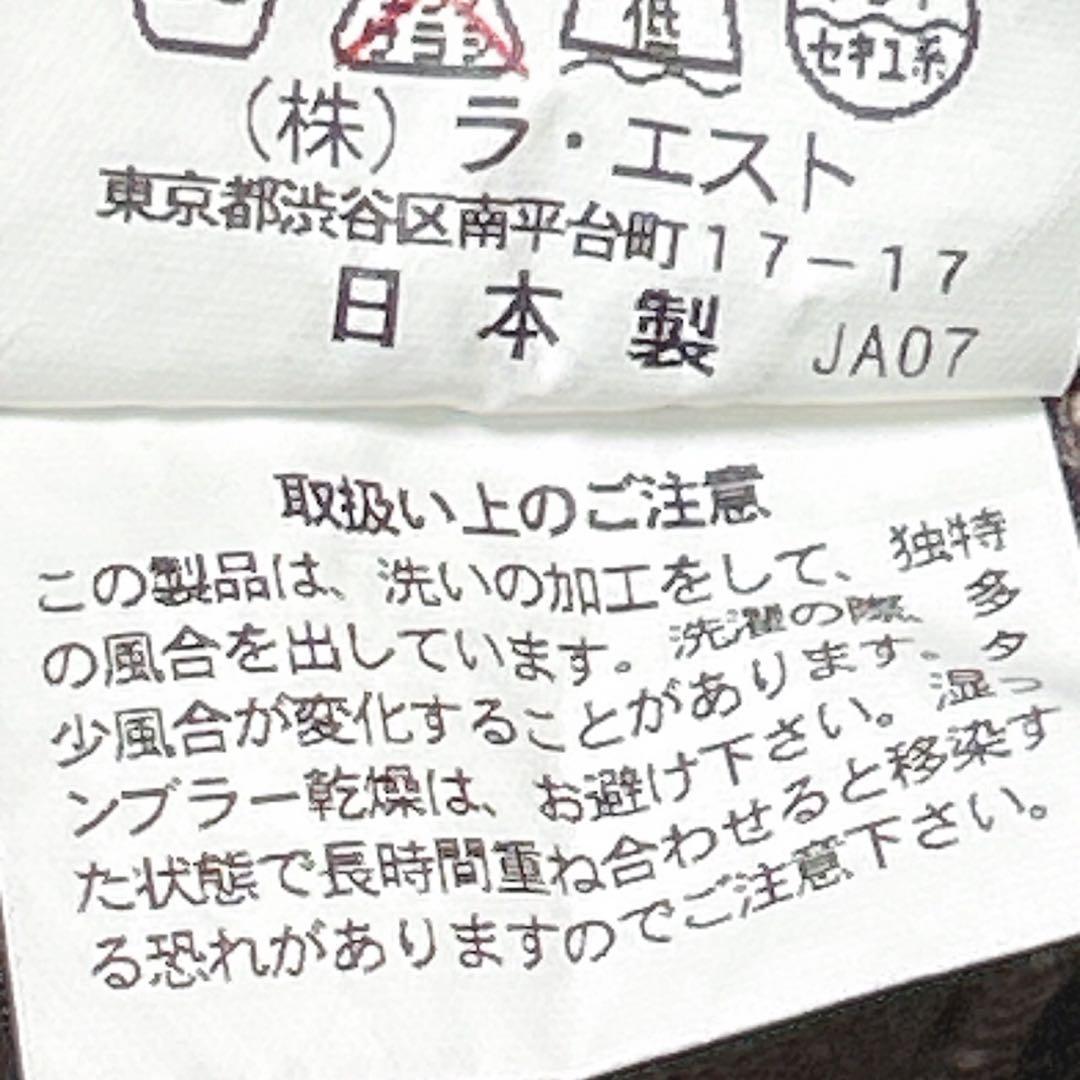 低
セキユ系
(株) ラ・エスト
東京都渋谷区南平台町17-17
日本製 JA07
取扱い上のご注意
この製品は、洗いの加工をして、独特
の風合を出しています。洗濯の際、多
少風合が変化することがあります。タ
ンブラー乾燥は、お避け下さい。湿っ
た状態で長時間重ね合わせると移染す
る恐れがありますのでご注意下さい。